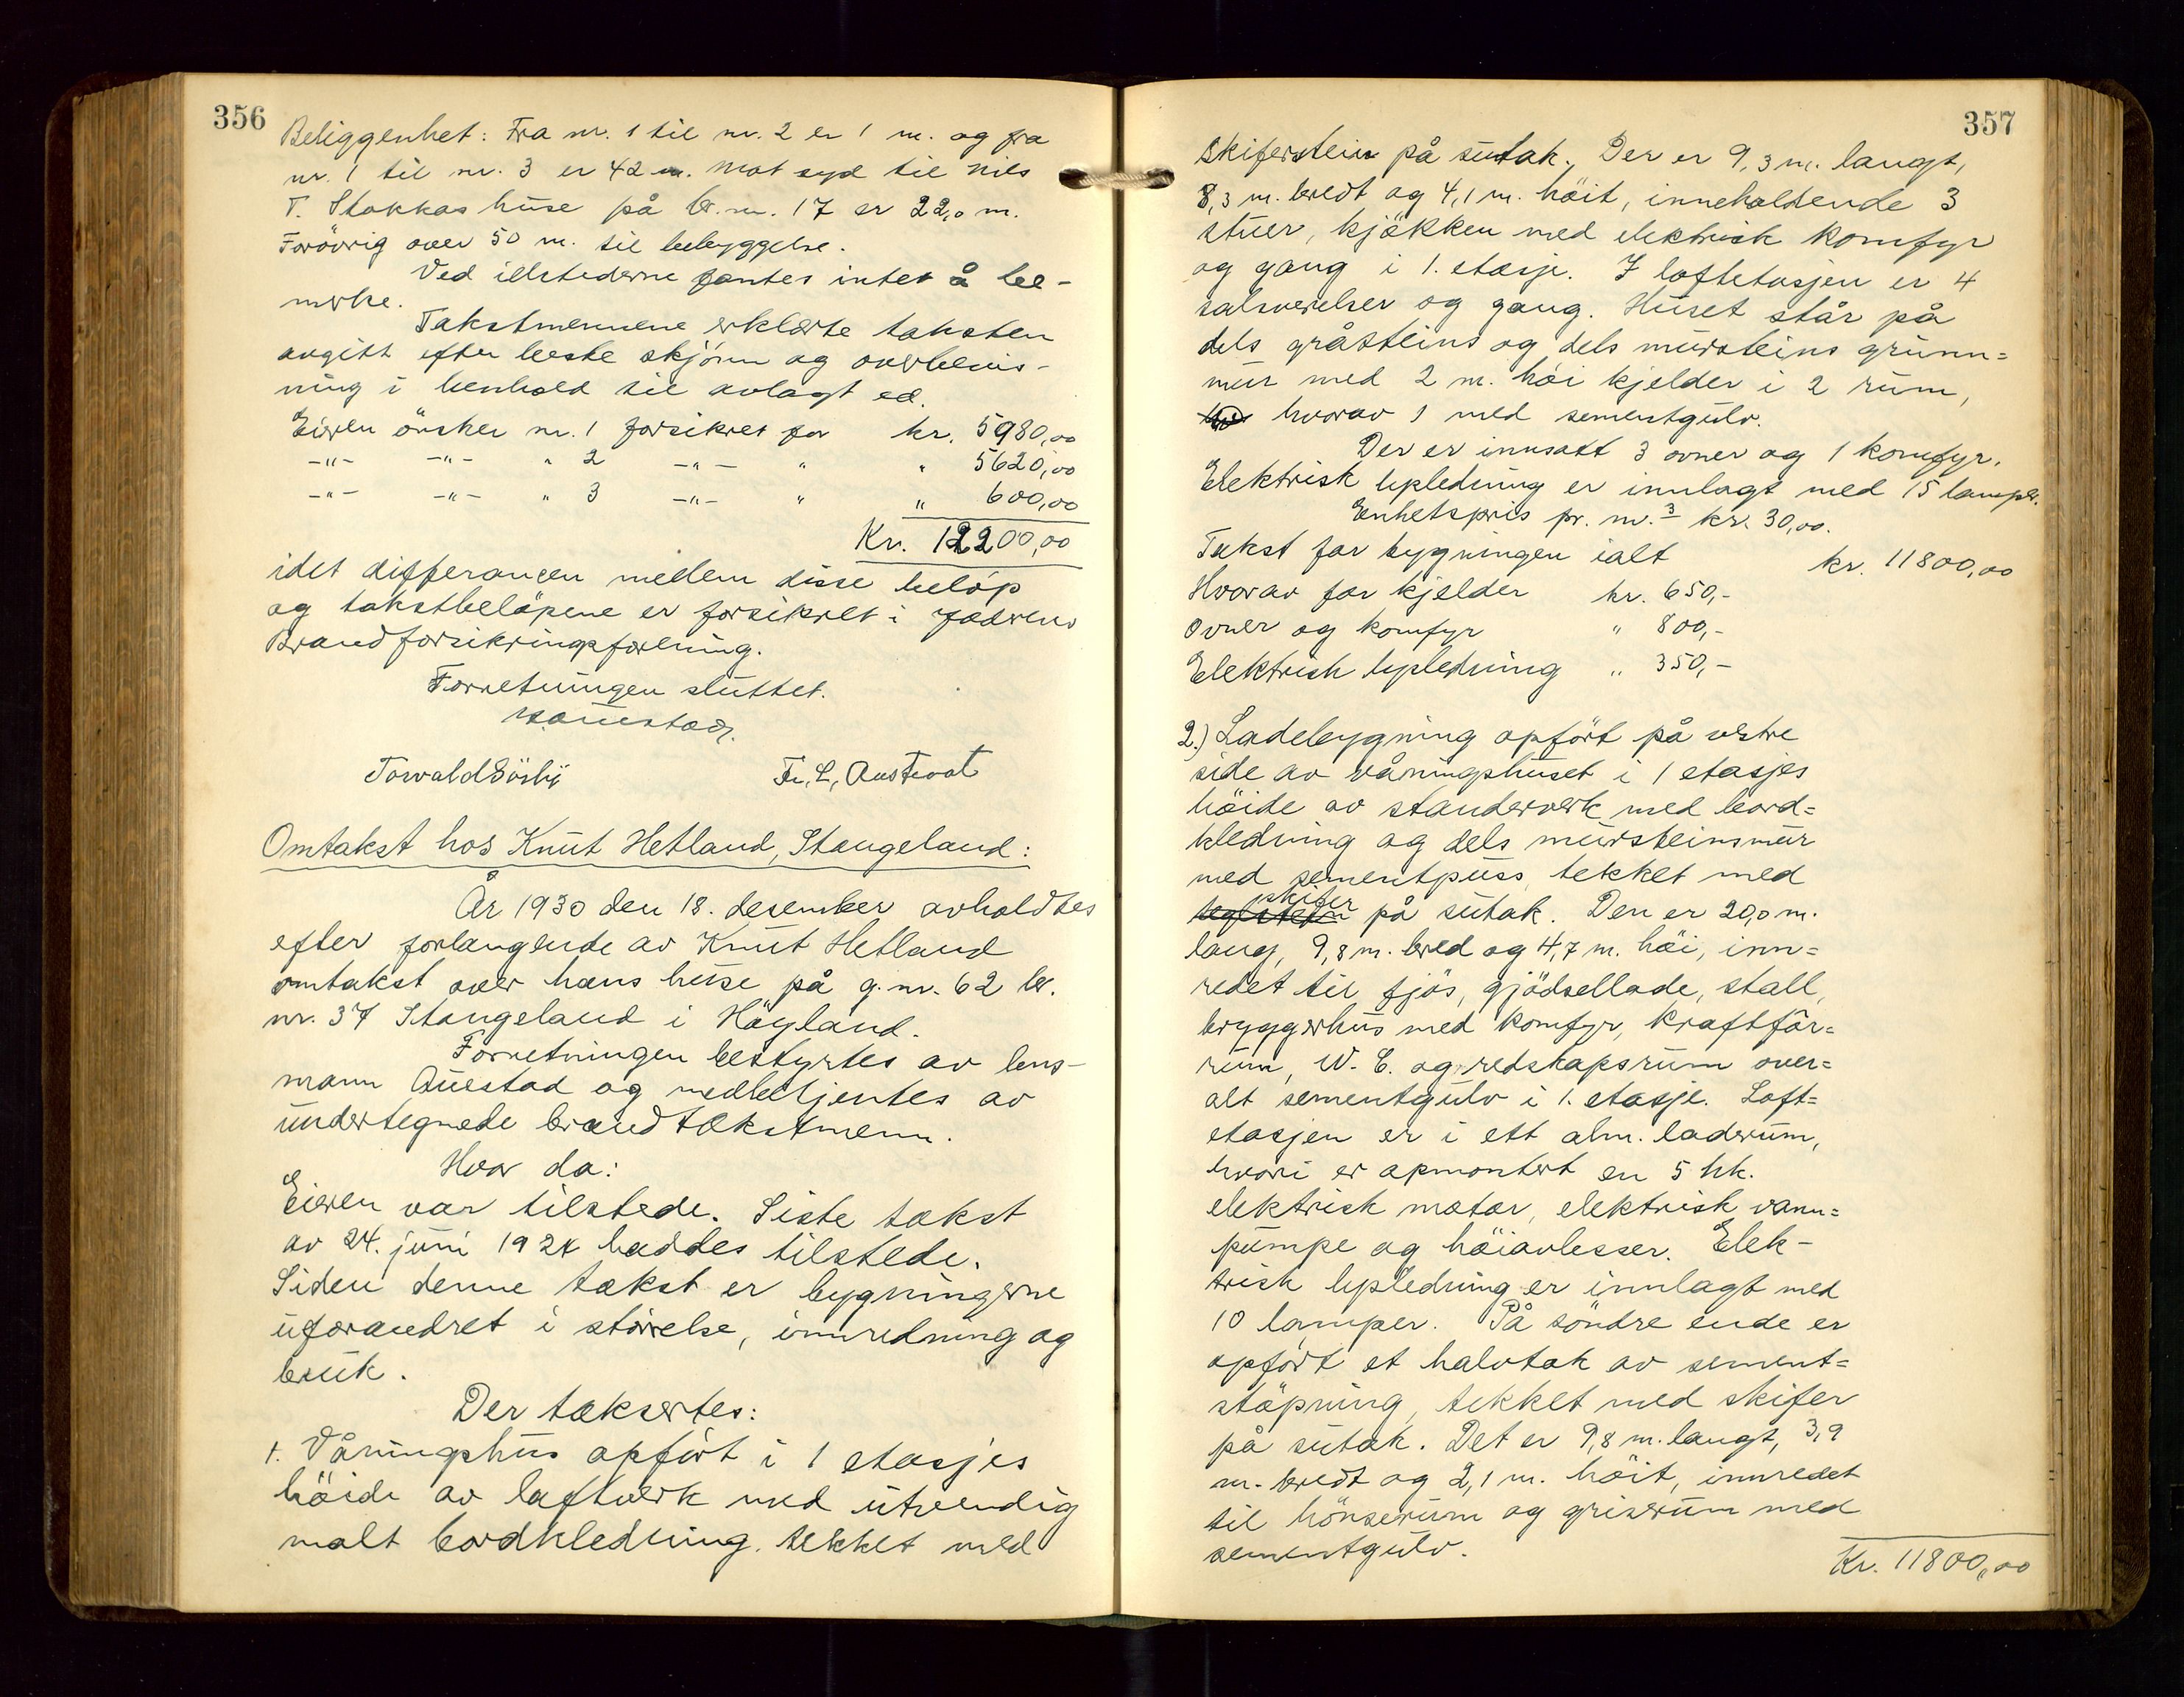 356
Beliggenhet: Fra nr. 1 til nr. 2 er 1 m. og fra
nr. 1 til nr. 3 er 42 m. Mot syd til Nils
T. Stokkas huse på br.nr. 17 er 22,0 m.
Forövrig over 50 m. til bebyggelse.
Ved ildstederne fantes intet å be-
merke.
Takstmennene erklærte taksten
avgitt efter beste skjönn og overbevis-
ning i henhold til avlagt ed.
Eieren önsker nr. 1 forsikret for kr. 5980,00
-"- -"- " 2 -"- " " 5620,00
-"- -"- " 3 -"- " " 600,00
Kr. 12200,00
idet differansen mellem disse belöp
og takstbelöpene er forsikret i Jædrens
Brandforsikringsforening.
Forretningen sluttet.
Torvald Sörby Fr. L. Austvoll
Omtakst hos Knut Hetland, Stangeland:
År 1930 den 18. desember avholdtes
efter forlangende av Knut Hetland
omtakst over hans huse på g.nr. 62 br.
nr. 37 Stangeland i Höyland.
Forretningen bestyrtes av lens-
mann Auestad og medbetjentes av
undertegnede brandtakstmenn.
Hvor da:
Eieren var tilstede. Siste takst
av 24. juni 1924 haddes tilstede.
Siden denne takst er bygningerne
uforandret i störrelse, innredning og
bruk.
Der taksertes:
1. Våningshus opfört i 1 etasjes
höide av laftverk med utvendig
malt bordkledning, tekket med
357
skiferstein på sutak. Der er 9,3 m. langt,
8,3 m. bredt og 4,1 m. höit, inneholdende 3
stuer, kjökken med elektrisk komfyr
og gang i 1. etasje. I loftetasjen er 4
salsværelser og gang. Huset står på
dels gråsteins og dels mursteins grunn=
mur med 2 m. höi kjelder i 2 rum,
hvorav 1 med sementgulv.
Der er innsatt 3 ovner og 1 komfyr.
Elektrisk lysledning er innlagt med 15 lamper.
Enhetspris pr. m.³ kr. 30,00.
Takst for bygningen ialt kr. 11800,00
Hvorav for kjelder kr. 650,-
Ovner og komfyr " 800,-
Elektrisk lysledning " 350,-
2.) Ladebygning opfört på vestre
side av våningshuset i 1 etasjes
höide av standerverk med bord=
kledning og dels mursteinsmur
med sementpuss, tekket med
skifer
teglstein på sutak. Den er 20,0 m.
lang, 9,8 m. bred og 4,7 m. höi, inn=
redet til fjös, gjödsellade, stall,
bryggerhus med komfyr, kraftfôr=
rum, W.C. og redskapsrum over=
alt sementgulv i 1. etasje. Loft=
etasjen er i ett alm. laderum,
hvori er opmontert en 5 hk.
elektrisk motor, elektrisk vann=
pumpe og höiavlesser. Elek-
trisk lysledning er innlagt med
10 lamper. På söndre ende er
opfört et halvtak av sement=
stöpning, tekket med skifer
på sutak. Det er 9,8 m. langt, 3,9
m. bredt og 2,1 m. höit, innredet
til hönserum og griserum med
sementgulv.
Kr. 11800,00